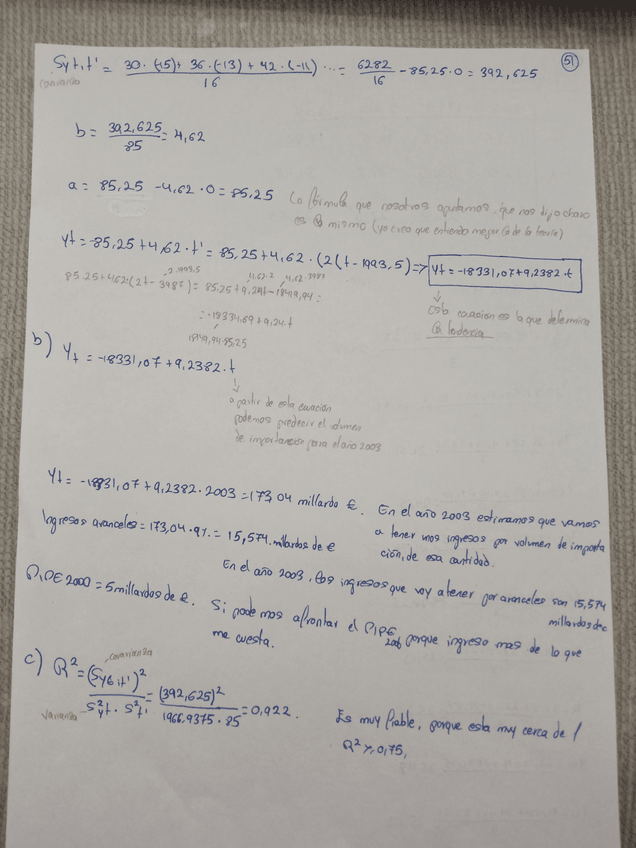 Syt,t' = 30·(-15)+ 36·(-13) + 42·(-11) ... / 16 = 6282 / 16 - 85,25·0 = 392,625
51
covarianza
b = 392,625 / 85 = 4,62
a = 85,25 - 4,62·0 = 85,25
La fórmula que nosotros apuntamos, que nos dijo
es lo mismo (yo creo que entiendo mejor la de la teoría)
Yt = 85,25+4,62·t' = 85,25+4,62·(2(t-1993,5) => Yt = -18331,07+9,2382·t
2·1993,5
4,62·2
85,25+4,62·(2t-3987) = 85,25+9,24t-18419,94 =
= -18334,69+9,24·t
Esta ecuación es la que determina
la tendencia
b) Yt = -18331,07+9,2382·t
a partir de esta ecuación
podemos predecir el volumen
de importación para el año 2003
Yt = -18331,07+9,2382·2003 = 173,04 millardo €.
En el año 2003 estimamos que vamos
a tener unos ingresos por volumen de importa
ción, de esa cantidad.
Ingresos aranceles = 173,04·9% = 15,574. millardos de €
En el año 2003, los ingresos que voy a tener por aranceles son 15,574
millardos de €
PIPE 2000 = 5 millardos de €.
Si podemos afrontar el PIPE porque ingreso mas de lo que
me cuesta.
c) R² = (Syt,t')² / S²yt · S²t' = (392,625)² / 1966,9375·85 = 0,922.
covarianza
varianza
Es muy fiable, porque esta muy cerca de 1
R² > 0,75,